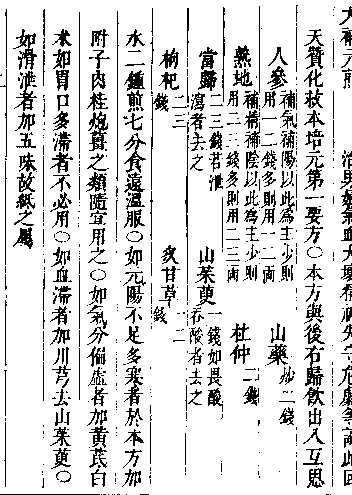 大補元煎 治男婦氣血大壞精神失守危劇等證此回
天贊化救本培元第一要方○本方與後右歸飲出入互思
人參 補氣補陽以此為主少則用一二錢多則用一二兩 山藥 炒二錢
熟地 補精補陰以此為主少則用二三錢多則用二三兩 杜仲 二錢
當歸 二三錢若泄瀉者去之 山茱萸 一錢如畏酸吞酸者去之
枸杞 二三錢 炙甘草 二錢
水二鍾煎七分食遠溫服○如元陽不足多寒者於本方加
附子肉桂炮薑之類隨宜用之○如氣分偏虛者加黃芪白
朮如胃口多滯者不必用○如血滯者加川芎去山茱萸○
如滑泄者加五味故紙之屬